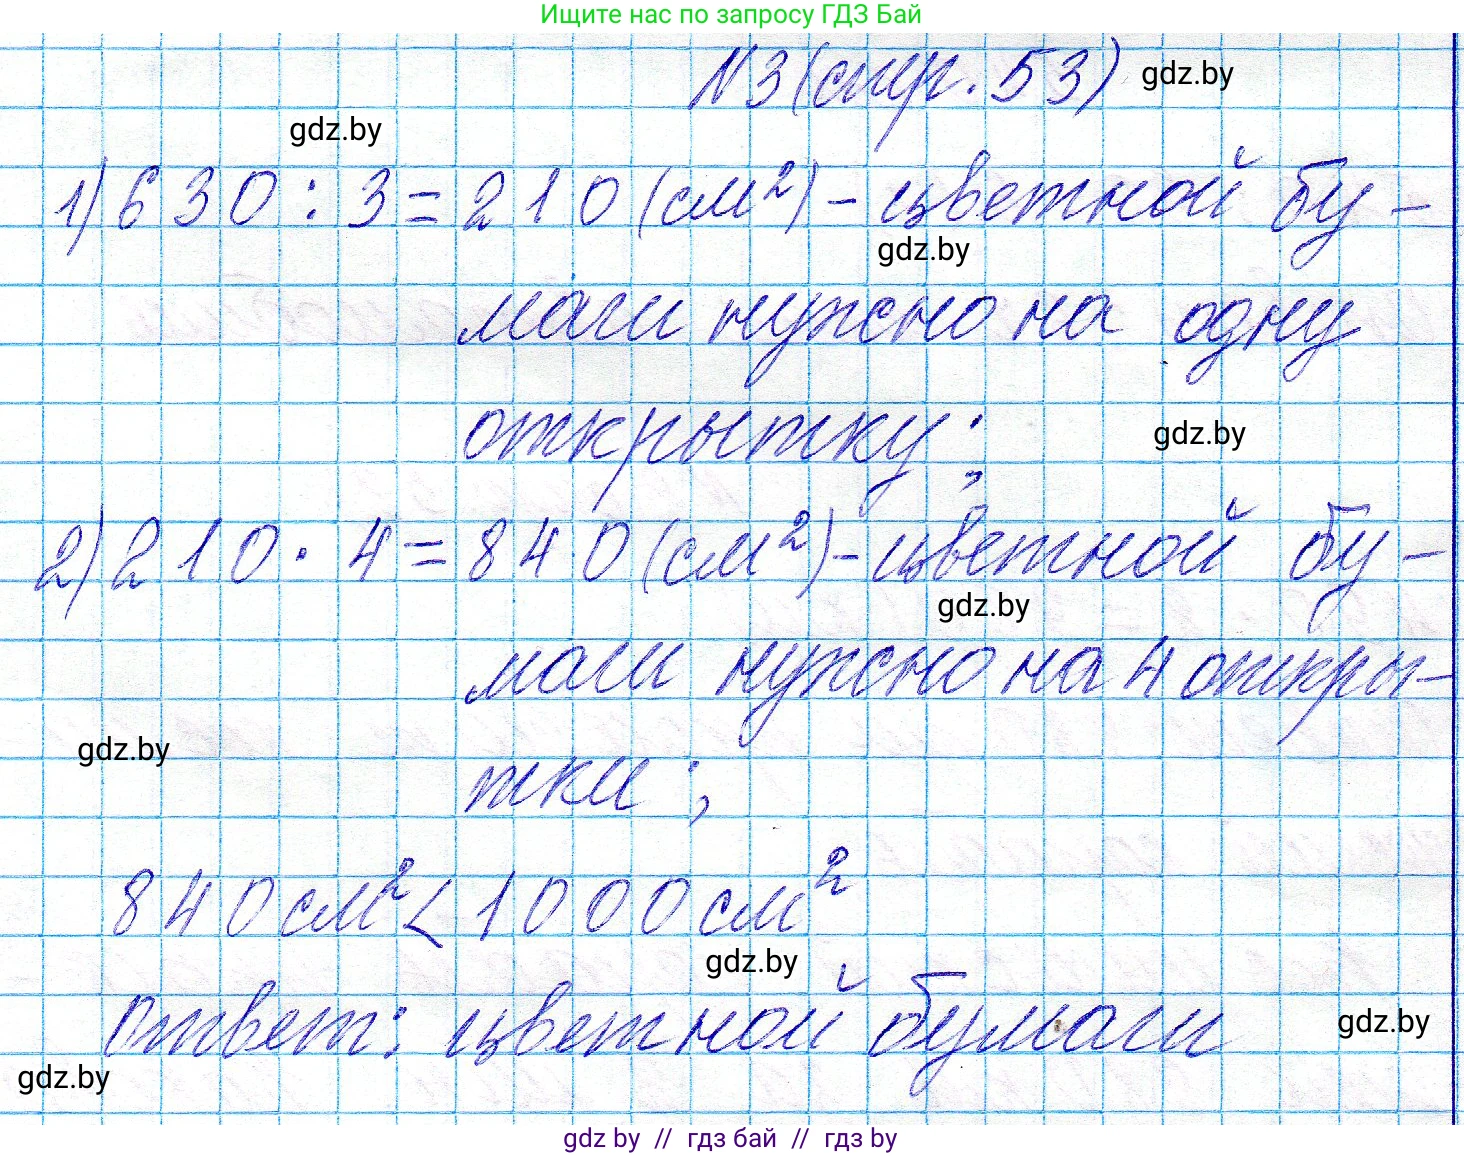 Ищите нас по запросу ГДЗ Бай
N3 (стр. 53)
gdz.by
gdz.by
1) 630 : 3 = 210 (см²) - цветной бу-
gdz.by
маги нужно на одну
открытку;
gdz.by
2) 210 · 4 = 840 (см²) - цветной бу-
gdz.by
маги нужно на 4 откры-
gdz.by
тки;
840 см² < 1000 см²
gdz.by
ответ: цветной бумаги
gdz.by
gdz.by
gdz by // гдз бай // гдз by